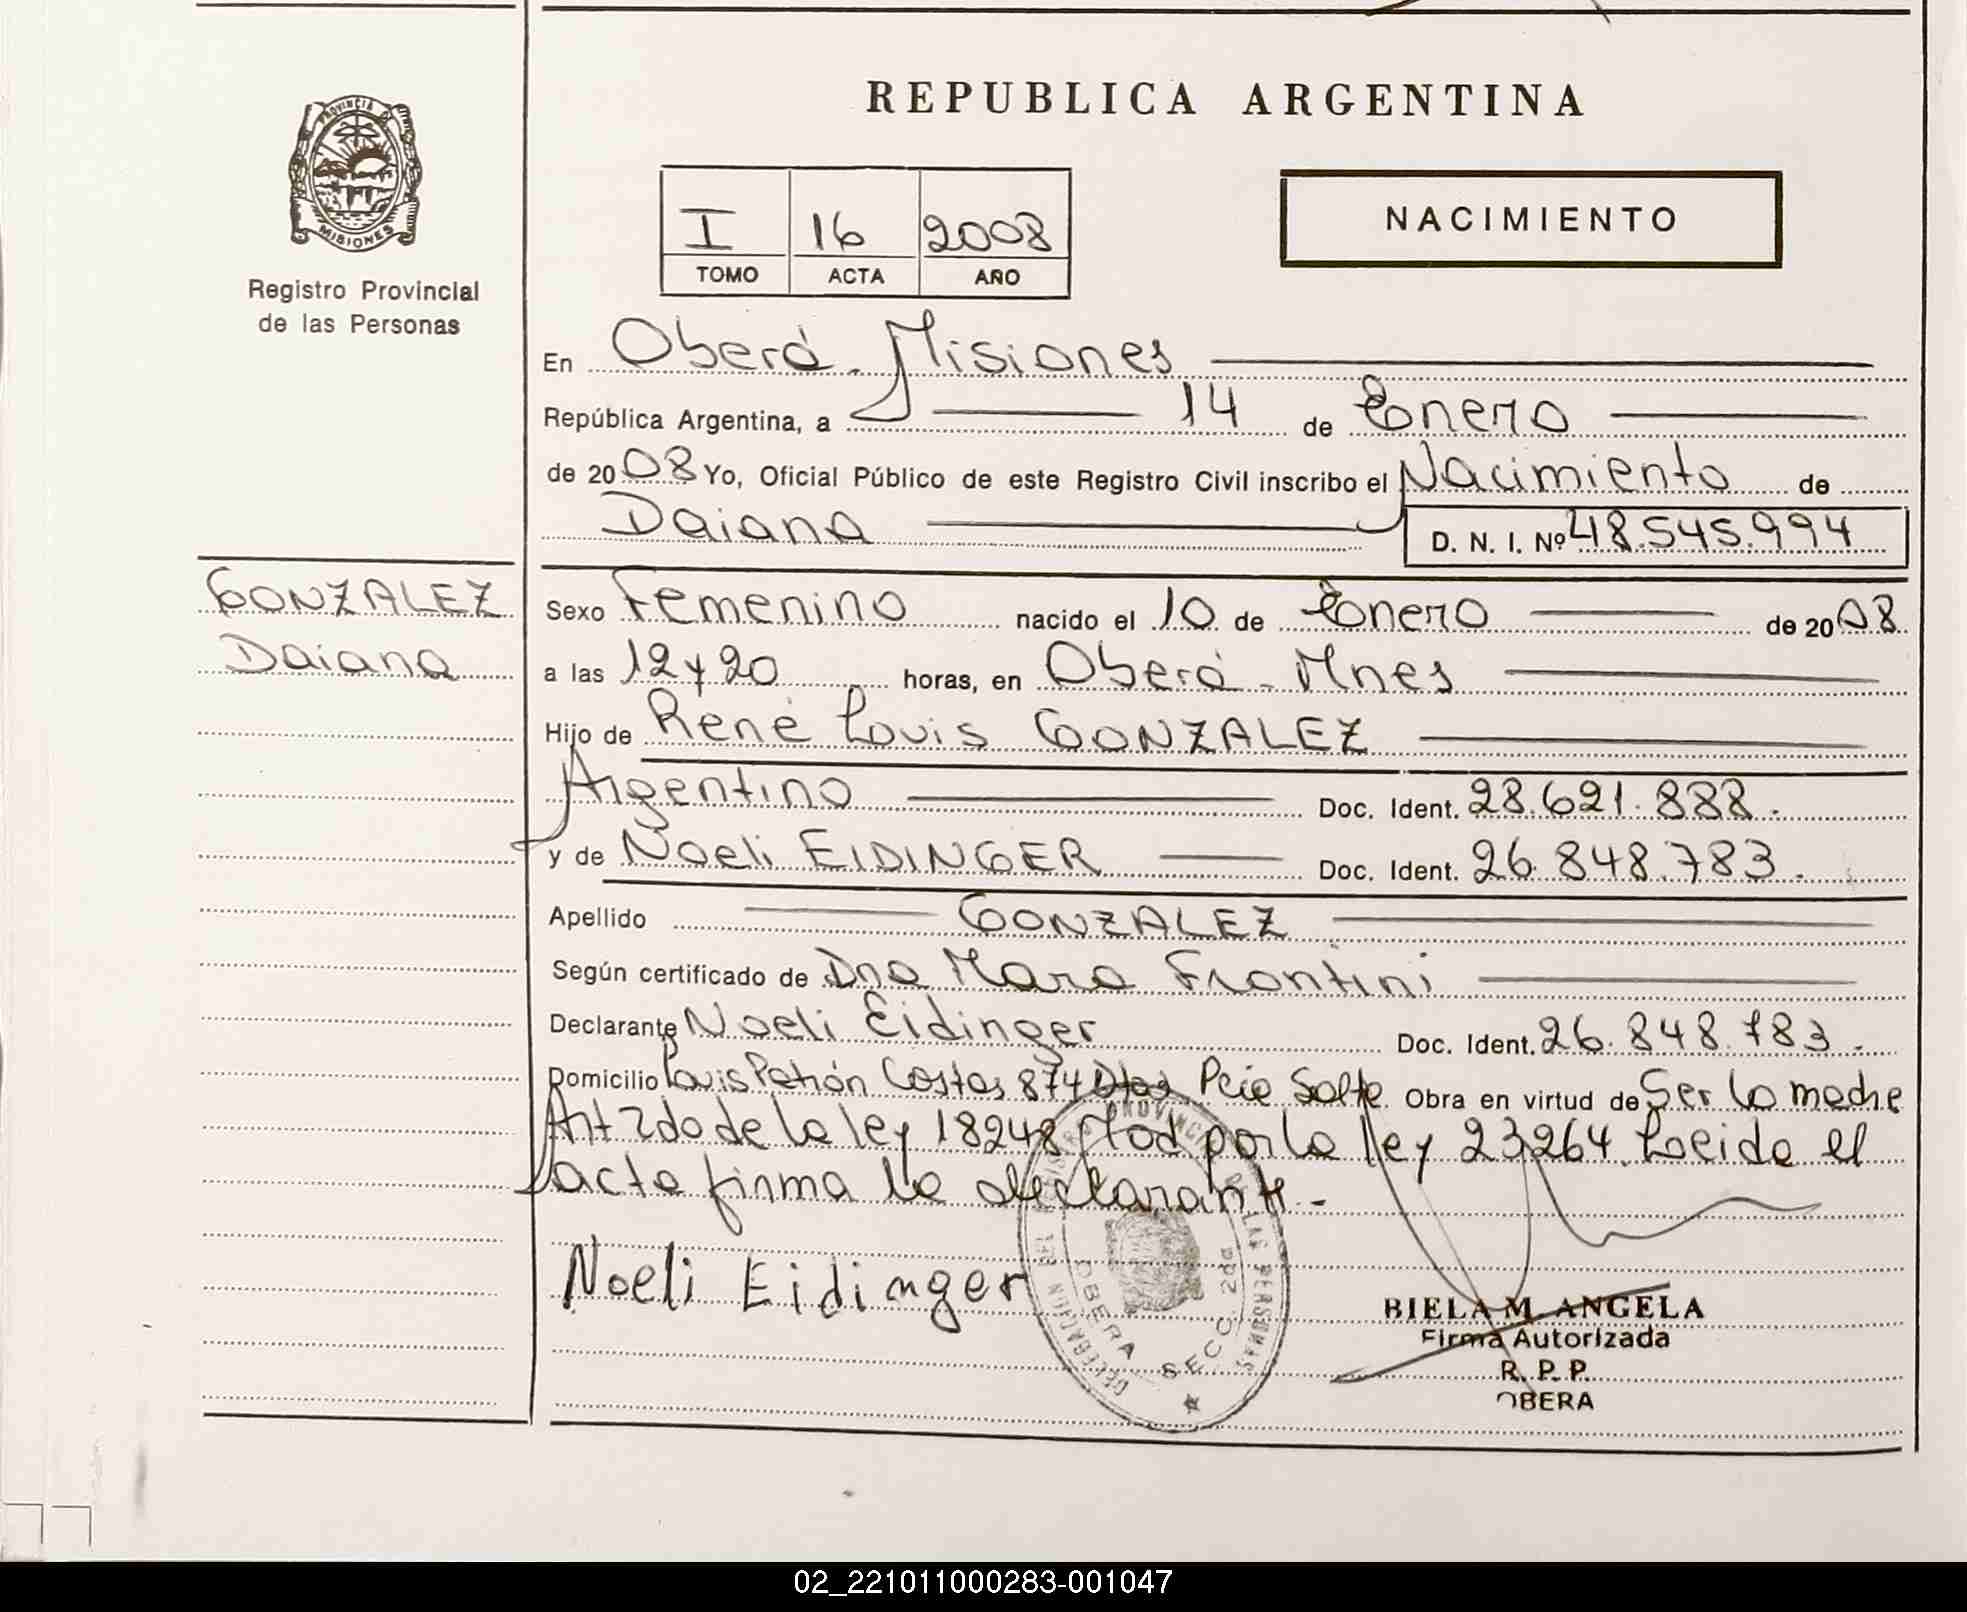 REPUBLICA ARGENTINA
PROVINCIA DE MISIONES
Registro Provincial
de las Personas
I 16 2008
TOMO ACTA AÑO
NACIMIENTO
En Oberá - Misiones
República Argentina, a 14 de Enero
de 2008 Yo, Oficial Público de este Registro Civil inscribo el Nacimiento de
Daiana D. N. I. Nº 48.545.994
GONZALEZ
Daiana
Sexo Femenino nacido el 10 de Enero de 2008
a las 12 y 20 horas, en Oberá - Mnes
Hijo de René Louis GONZALEZ
Argentino Doc. Ident. 28.621.888.
y de Noeli EIDINGER Doc. Ident. 26.848.783.
Apellido GONZALEZ
Según certificado de Dra Mara Frontini
Declarante Noeli Eidinger Doc. Ident. 26.848.783.
Domicilio Louis Patrón Costas 874 Pcia Salta Obra en virtud de Ser la madre
Art 2do de la ley 18248 Mod por la ley 23264. Leida el
acta firma la declarante.-
Noeli Eidinger
PROVINCIAL DE LAS PERSONAS
OBERA SECC. 2da
BIELA M. ANGELA
Firma Autorizada
R. P. P.
OBERA
02_221011000283-001047